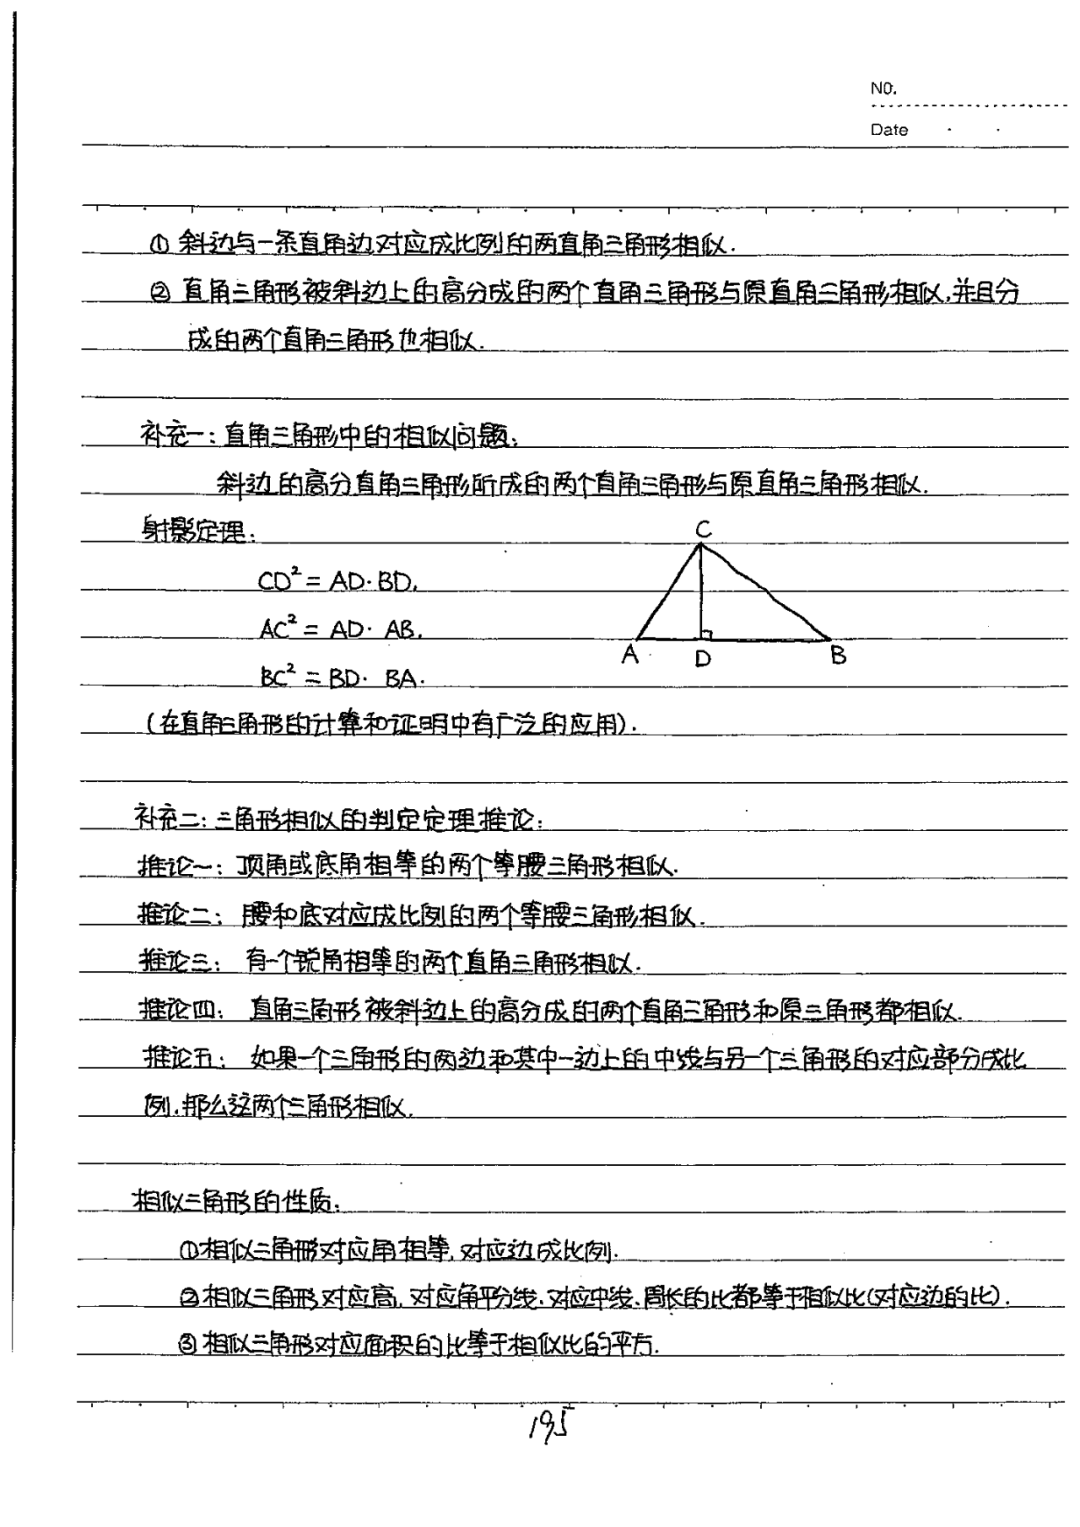 NO.
Date
① 斜边与一条直角边对应成比例的两直角三角形相似.
② 直角三角形被斜边上的高分成的两个直角三角形与原直角三角形相似,并且分
成的两个直角三角形也相似.
补充一:直角三角形中的相似问题:
斜边的高分直角三角形所成的两个直角三角形与原直角三角形相似.
射影定理:
C
CD²= AD·BD.
AC²= AD· AB.
A D B
BC² = BD· BA.
(在直角三角形的计算和证明中有广泛的应用).
补充二:三角形相似的判定定理推论:
推论一:顶角或底角相等的两个等腰三角形相似.
推论二:腰和底对应成比例的两个等腰三角形相似.
推论三:有一个锐角相等的两个直角三角形相似.
推论四:直角三角形被斜边上的高分成的两个直角三角形和原三角形都相似.
推论五:如果一个三角形的两边和其中一边上的中线与另一个三角形的对应部分成比
例,那么这两个三角形相似.
相似三角形的性质:
①相似三角形对应角相等,对应边成比例.
②相似三角形对应高,对应角平分线,对应中线、周长的比都等于相似比(对应边的比).
③相似三角形对应面积的比等于相似比的平方.
195